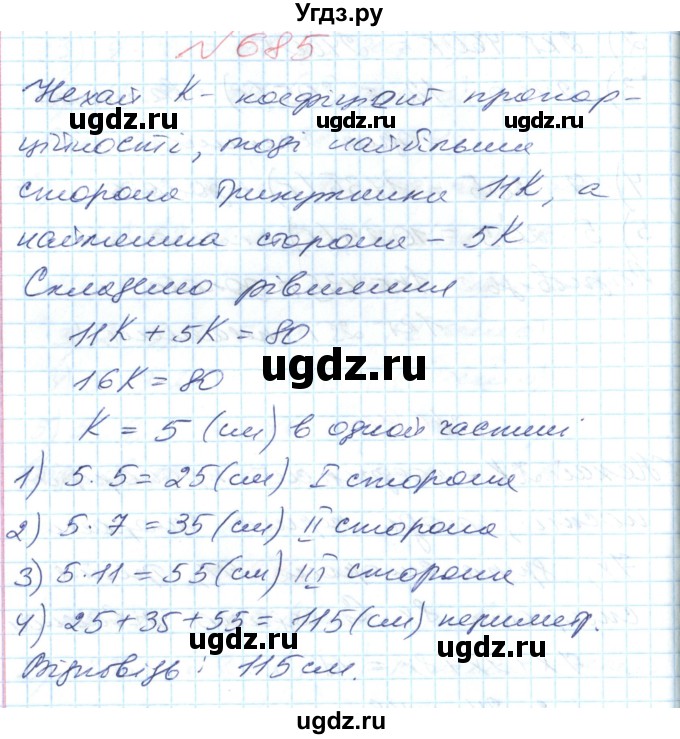 Угdz.ру
№ 685
Нехай К - коефіцієнт пропор-
ційності, тоді найбільша
сторона трикутника 11К, а
найменша сторона - 5К
Складемо рівняння
11К + 5К = 80
16К = 80
К = 5 (см) в одной частині
1) 5 · 5 = 25 (см) I сторона
2) 5 · 7 = 35 (см) II сторона
3) 5 · 11 = 55 (см) III сторона
4) 25 + 35 + 55 = 115 (см) периметр.
Відповідь: 115 см.
ugdz.ru
ugdz.ru
ugdz.ru
ugdz.ru
ugdz.ru
ugdz.ru
ugdz.ru
ugdz.ru